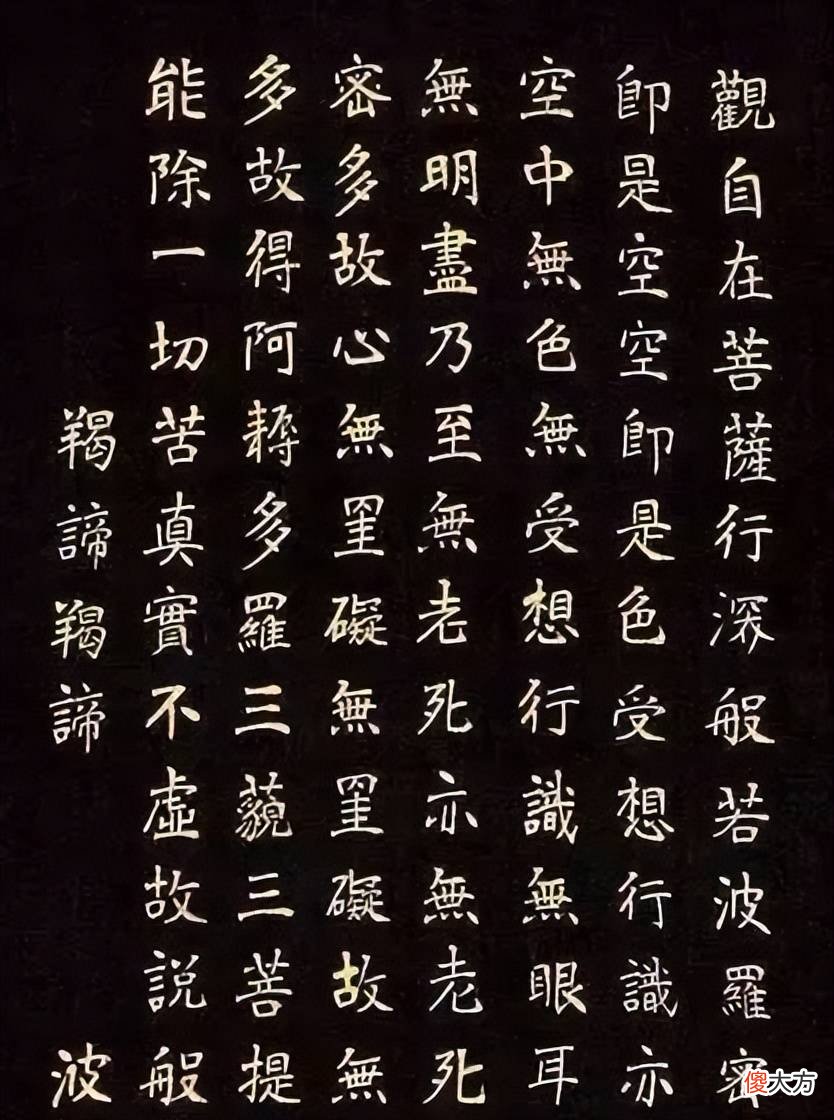 觀自在菩薩行深般若波羅密
即是空空即是色受想行識亦
空中無色無受想行識無眼耳
無明盡乃至無老死亦無老死
密多故心無罣礙無罣礙故無
多故得阿耨多羅三藐三菩提
能除一切苦真實不虛故說般
羯諦羯諦 波
傻大方